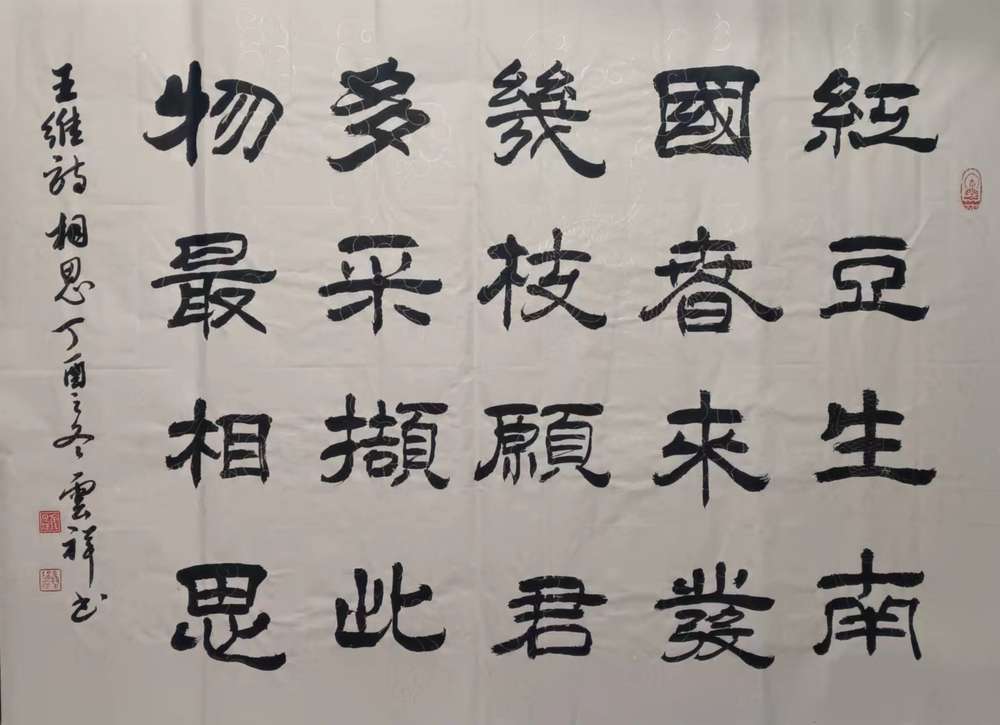 紅豆生南
國春來發
幾枝願君
多采擷此
物最相思
王維詩相思丁酉之冬雲祥书